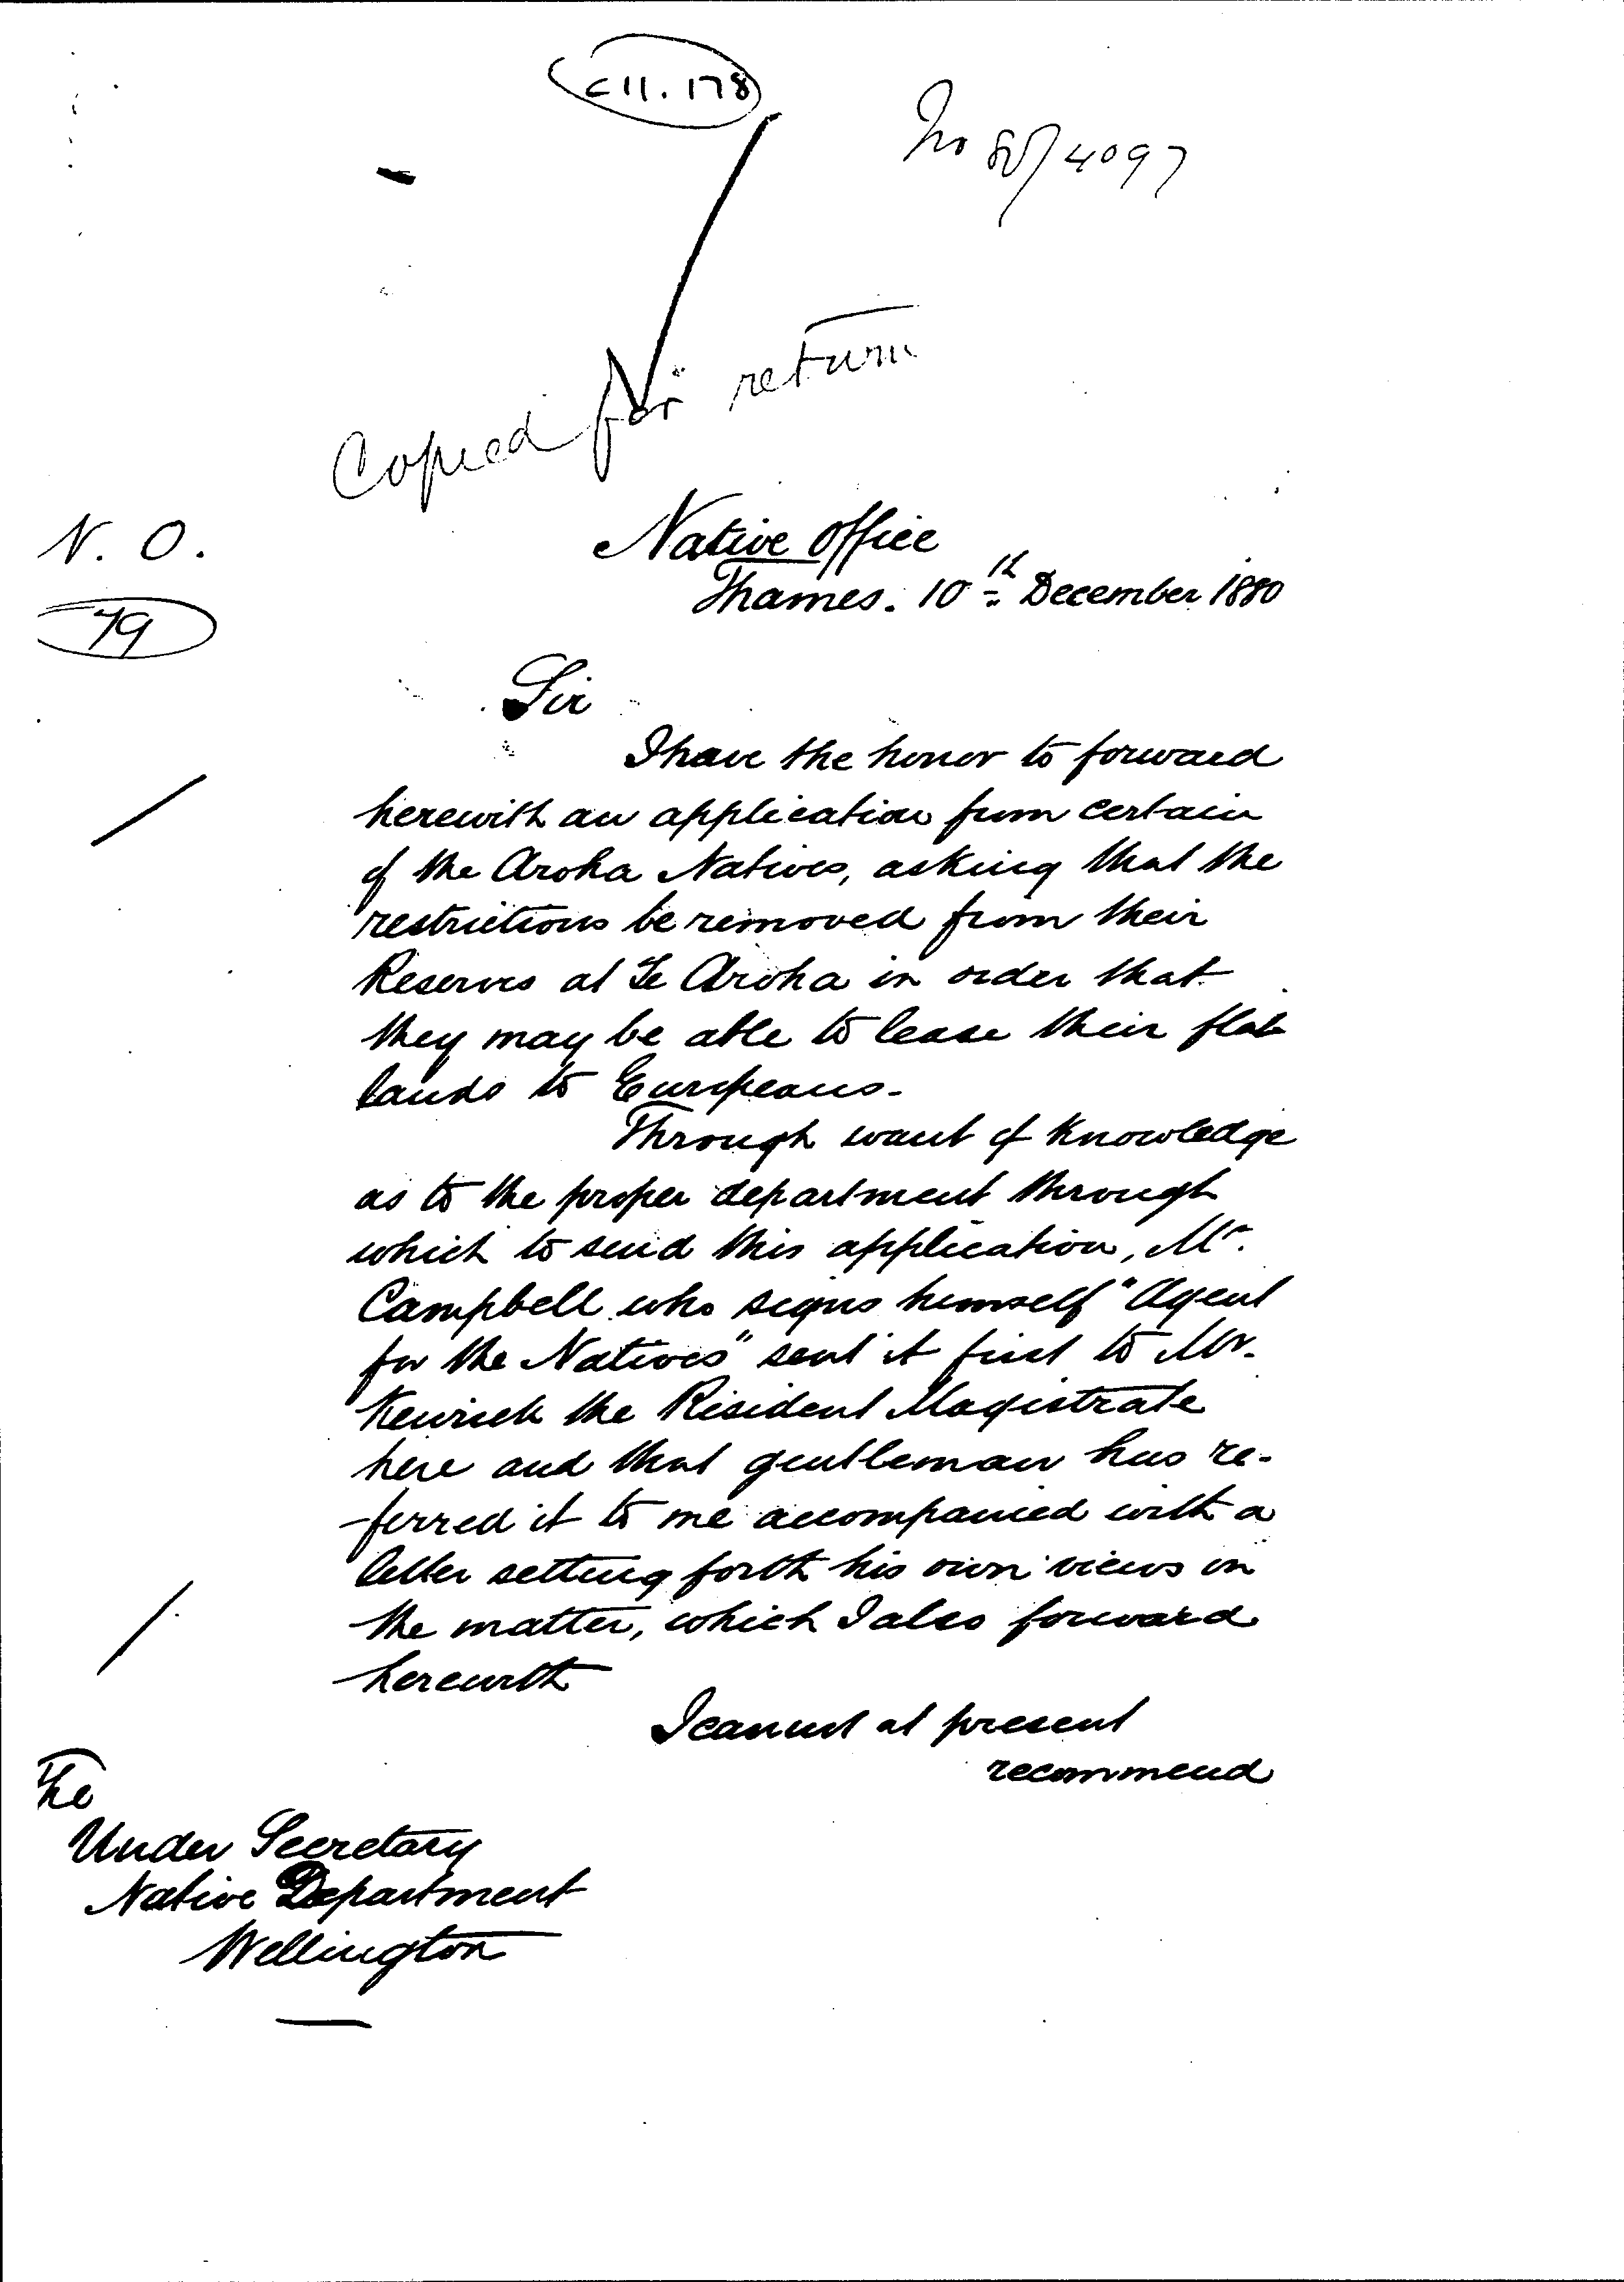 C11.178
No 80/4097
Copied for return
N. O.
79
Native Office
Thames. 10th December 1880
Sir
I have the honor to forward
herewith an application from certain
of the Aroha Natives, asking that the
restrictions be removed from their
Reserves at Te Aroha in order that
they may be able to lease their flat
lands to Europeans.
Through want of Knowledge
as to the proper department through
which to send this application, Mr.
Campbell who signs himself "Agent
for the Natives" sent it first to Mr.
Kenrick the Resident Magistrate
here and that gentleman has re-
-ferred it to me accompanied with a
letter setting forth his own views on
the matter, which I also forward
herewith
I cannot at present
recommend
The
Under Secretary
Native Department
Wellington